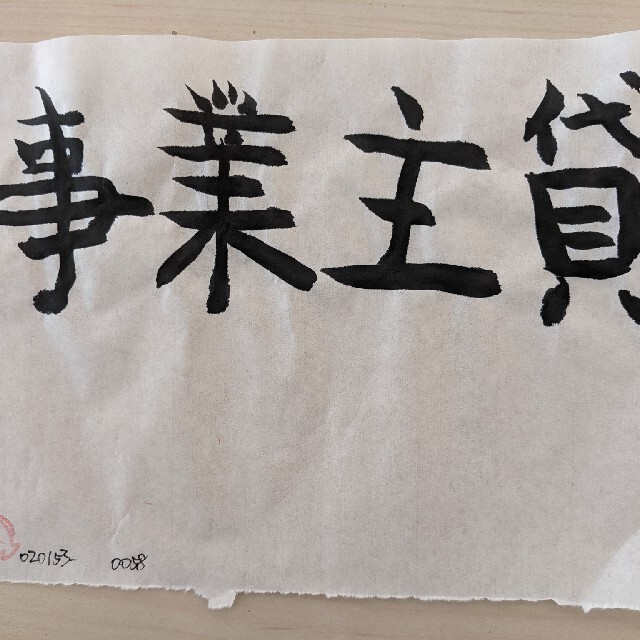 事業主貸
020153 0058